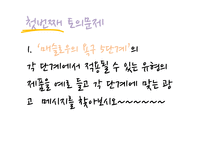 첫번째 토의문제
1. '매슬로우의 욕구 5단계'의
각 단계에서 적용될 수 있는 유형의
제품을 예로 들고 각 단계에 맞는 광
고 메시지를 찾아보시오~~~~~~